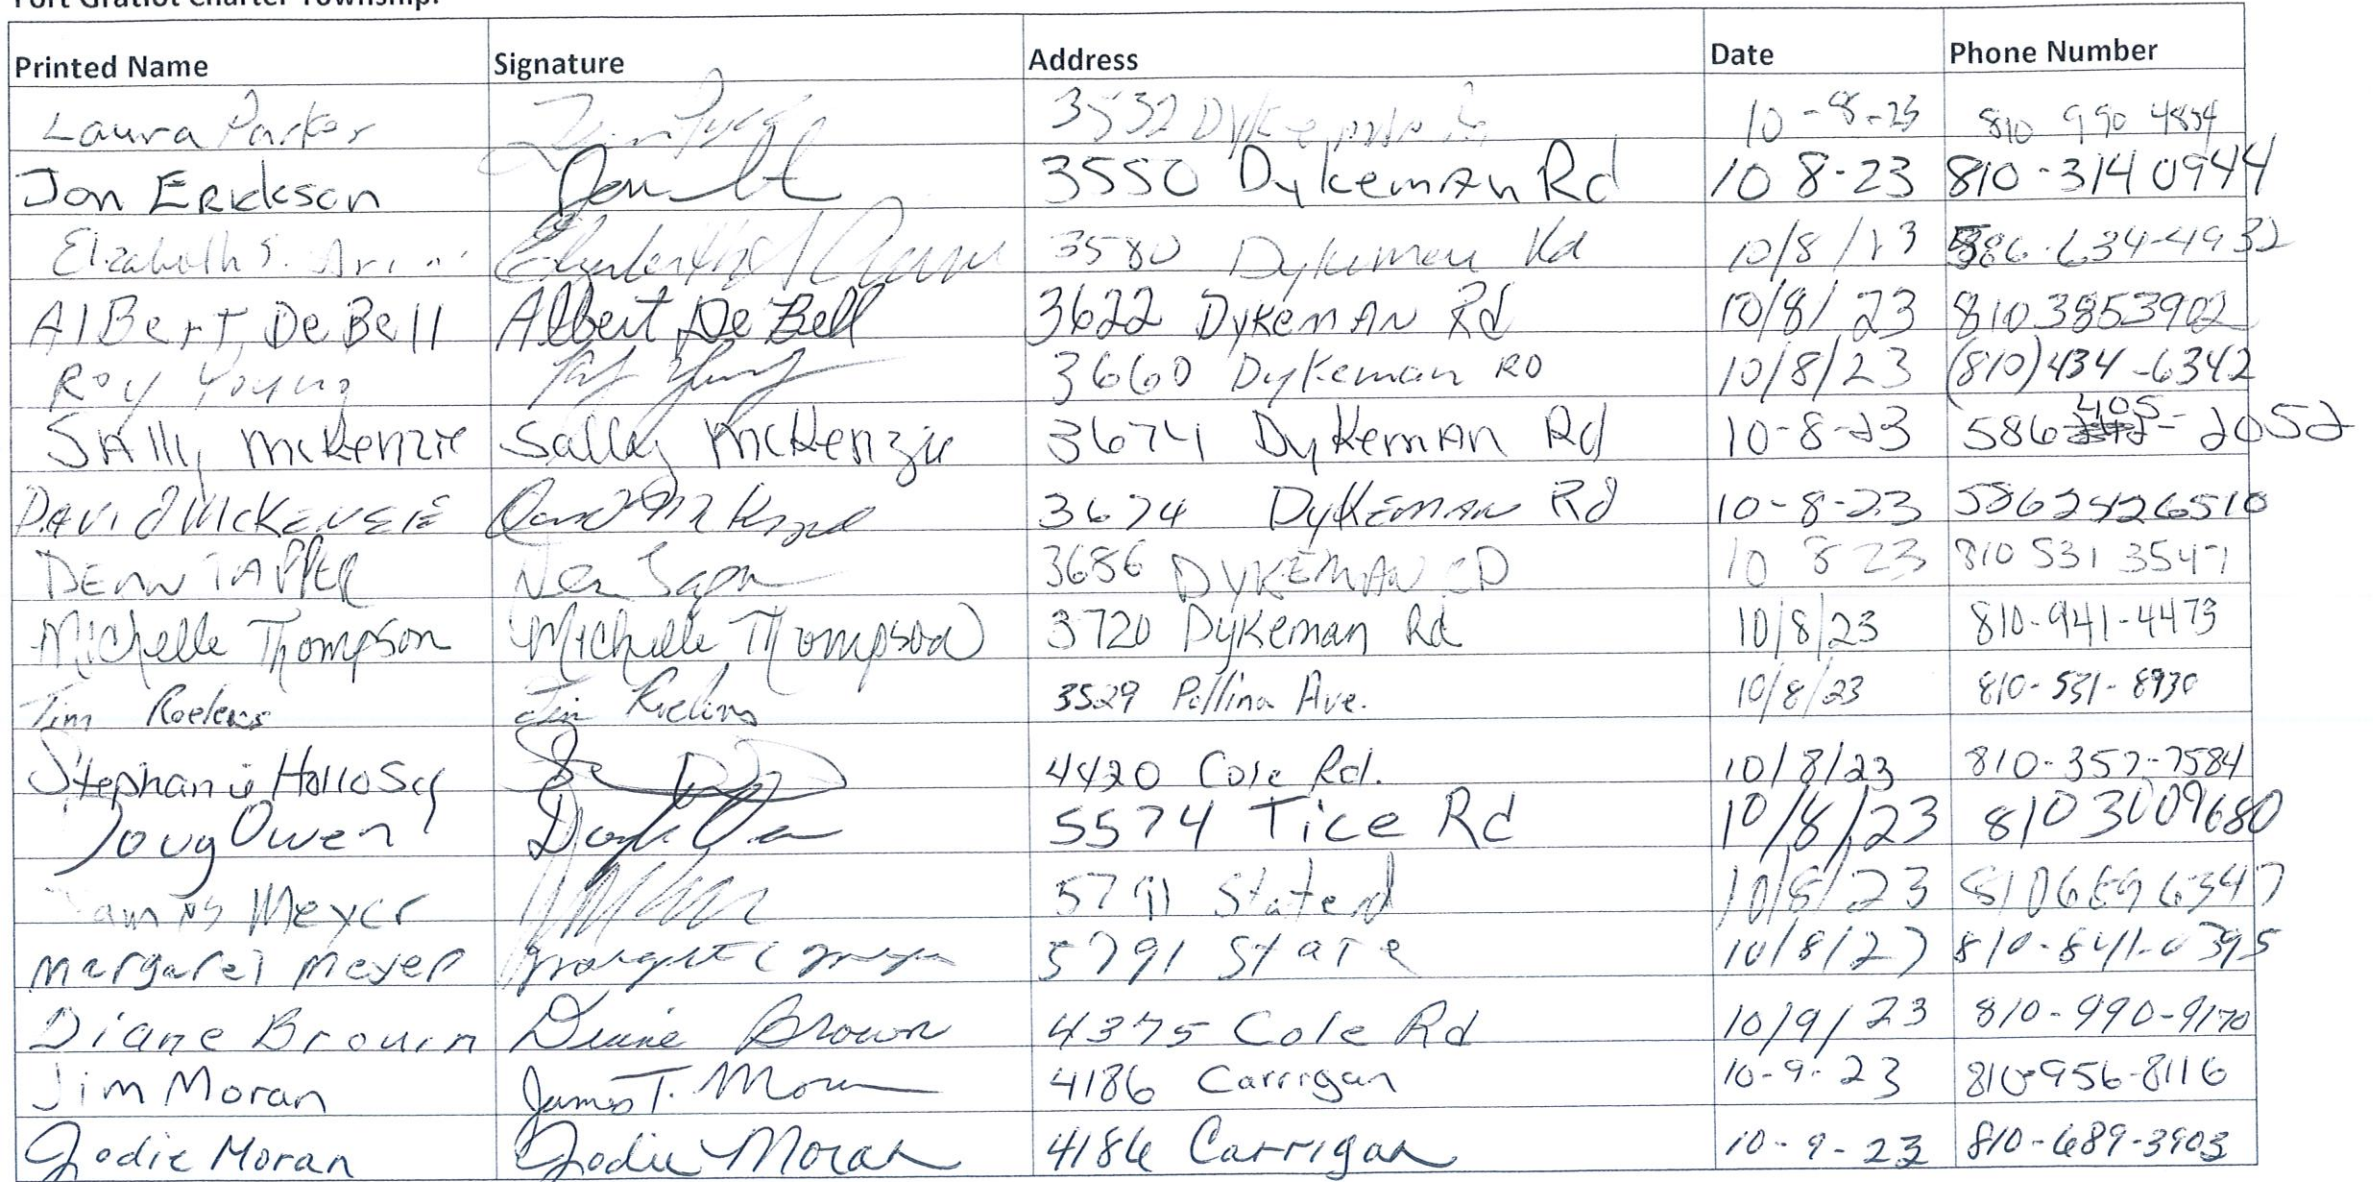 Fort Gratiot Charter Township.
Printed Name Signature Address Date Phone Number
Laura Parker 3532 Dykeman 10-8-23 810 990 4854
Jon Erickson 3550 Dykeman Rd 10 8-23 810-314 0944
Elizabeth S. 3580 Dykeman Rd 10/8/23 586-634-4932
AlBerT DeBell Albert DeBell 3622 DykemAN Rd 10/8/23 8103853902
Roy Young Roy Young 3660 Dykeman RD 10/8/23 (810)434-6342
SAlly McKenzie Sally McKenzie 3674 DykemAn Rd 10-8-23 586 405-2052
DAViD McKENZIE David McKenzie 3674 DyKEMAN Rd 10-8-23 5862426510
DEAN TAPPER 3686 DYKEMAN RD 10 8 23 810 531 3547
Michelle Thompson Michelle Thompson 3720 Dykeman Rd 10/8/23 810-941-4473
Tim Roelens Tim Roelens 3529 Pollina Ave. 10/8/23 810-531-8930
Stephanie Hollosy 4420 Cole Rd. 10/8/23 810-357-7584
Doug Owen 5574 Tice Rd 10/8/23 8103009680
Meyer 5791 State rd 10/8/23 8106896347
Margaret Meyer Margaret C Meyer 5791 State 10/8/23 810-841-0395
Diane Brown Diane Brown 4375 Cole Rd 10/9/23 810-990-9170
Jim Moran James T. Moran 4186 Carrigan 10-9-23 810-956-8116
Jodie Moran Jodie Moran 4186 Carrigan 10-9-23 810-689-3903